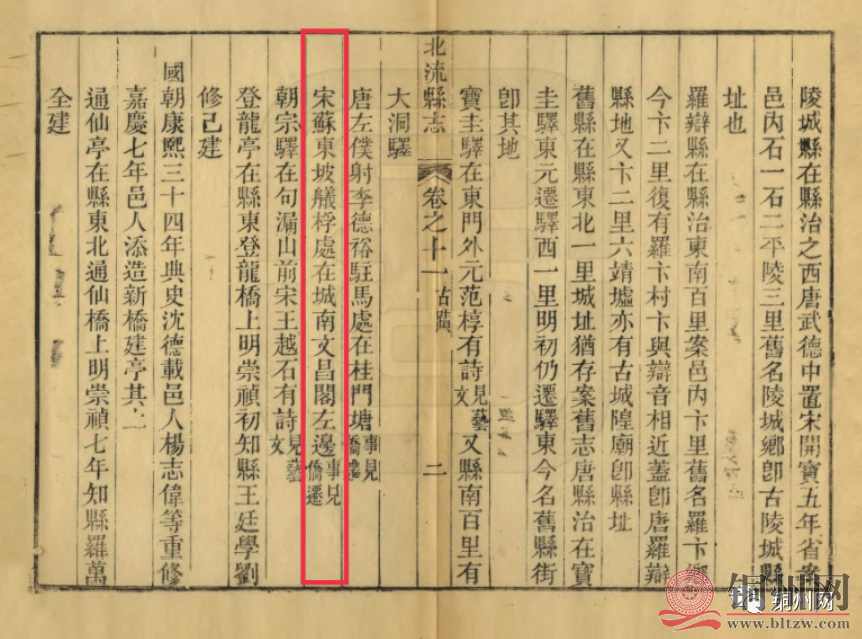 陵城縣在縣治之西唐武德中置宋開寶五年省案
邑内石一石二平陵三里舊名陵城鄉卽古陵城縣
址也
羅辯縣在縣治東南百里案邑内卞里舊名羅卞鄉
今卞二里復有羅卞村卞與辯音相近蓋卽唐羅辯
縣地又卞二里六靖墟亦有古城隍廟卽縣址
舊縣在縣東北一里城址猶存案舊志唐縣治在寶
圭驛東元遷驛西一里明初仍遷驛東今名舊縣街
卽其地
寶圭驛在東門外元范梈有詩見藝文又縣南百里有
北流縣志 卷之十一 古蹟 二
大洞驛
唐左僕射李德裕駐馬處在桂門塘事見僑
宋蘇東坡艤桴處在城南文昌閣左邊事見僑遷
朝宗驛在句漏山前宋王越石有詩見藝文
登龍亭在縣東登龍橋上明崇禎初知縣王廷學劉
修己建
國朝康熙三十四年典史沈德載邑人楊志偉等重修
嘉慶七年邑人添造新橋建亭其上
通仙亭在縣東北通仙橋上明崇禎七年知縣羅萬
全建
铜州网
www.bltzw.com
铜州网